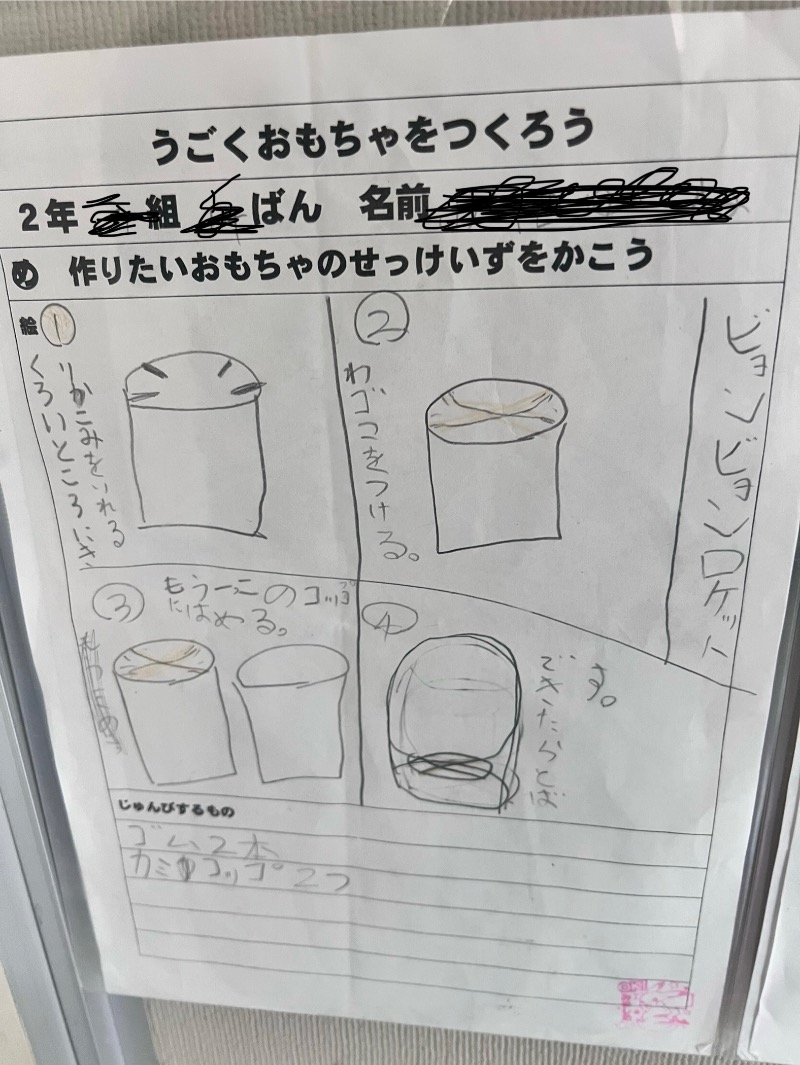 うごくおもちゃをつくろう
2年 組 ばん 名前
め 作りたいおもちゃのせっけいずをかこう
絵
1
くろいところにき
りかこみをいれる
2
わゴムをつける。
ピョンピョンロケット
3
もう一つのコップ
にはめる。
4
できたらとば
す。
じゅんびするもの
ゴム2本
カミコップ2つ